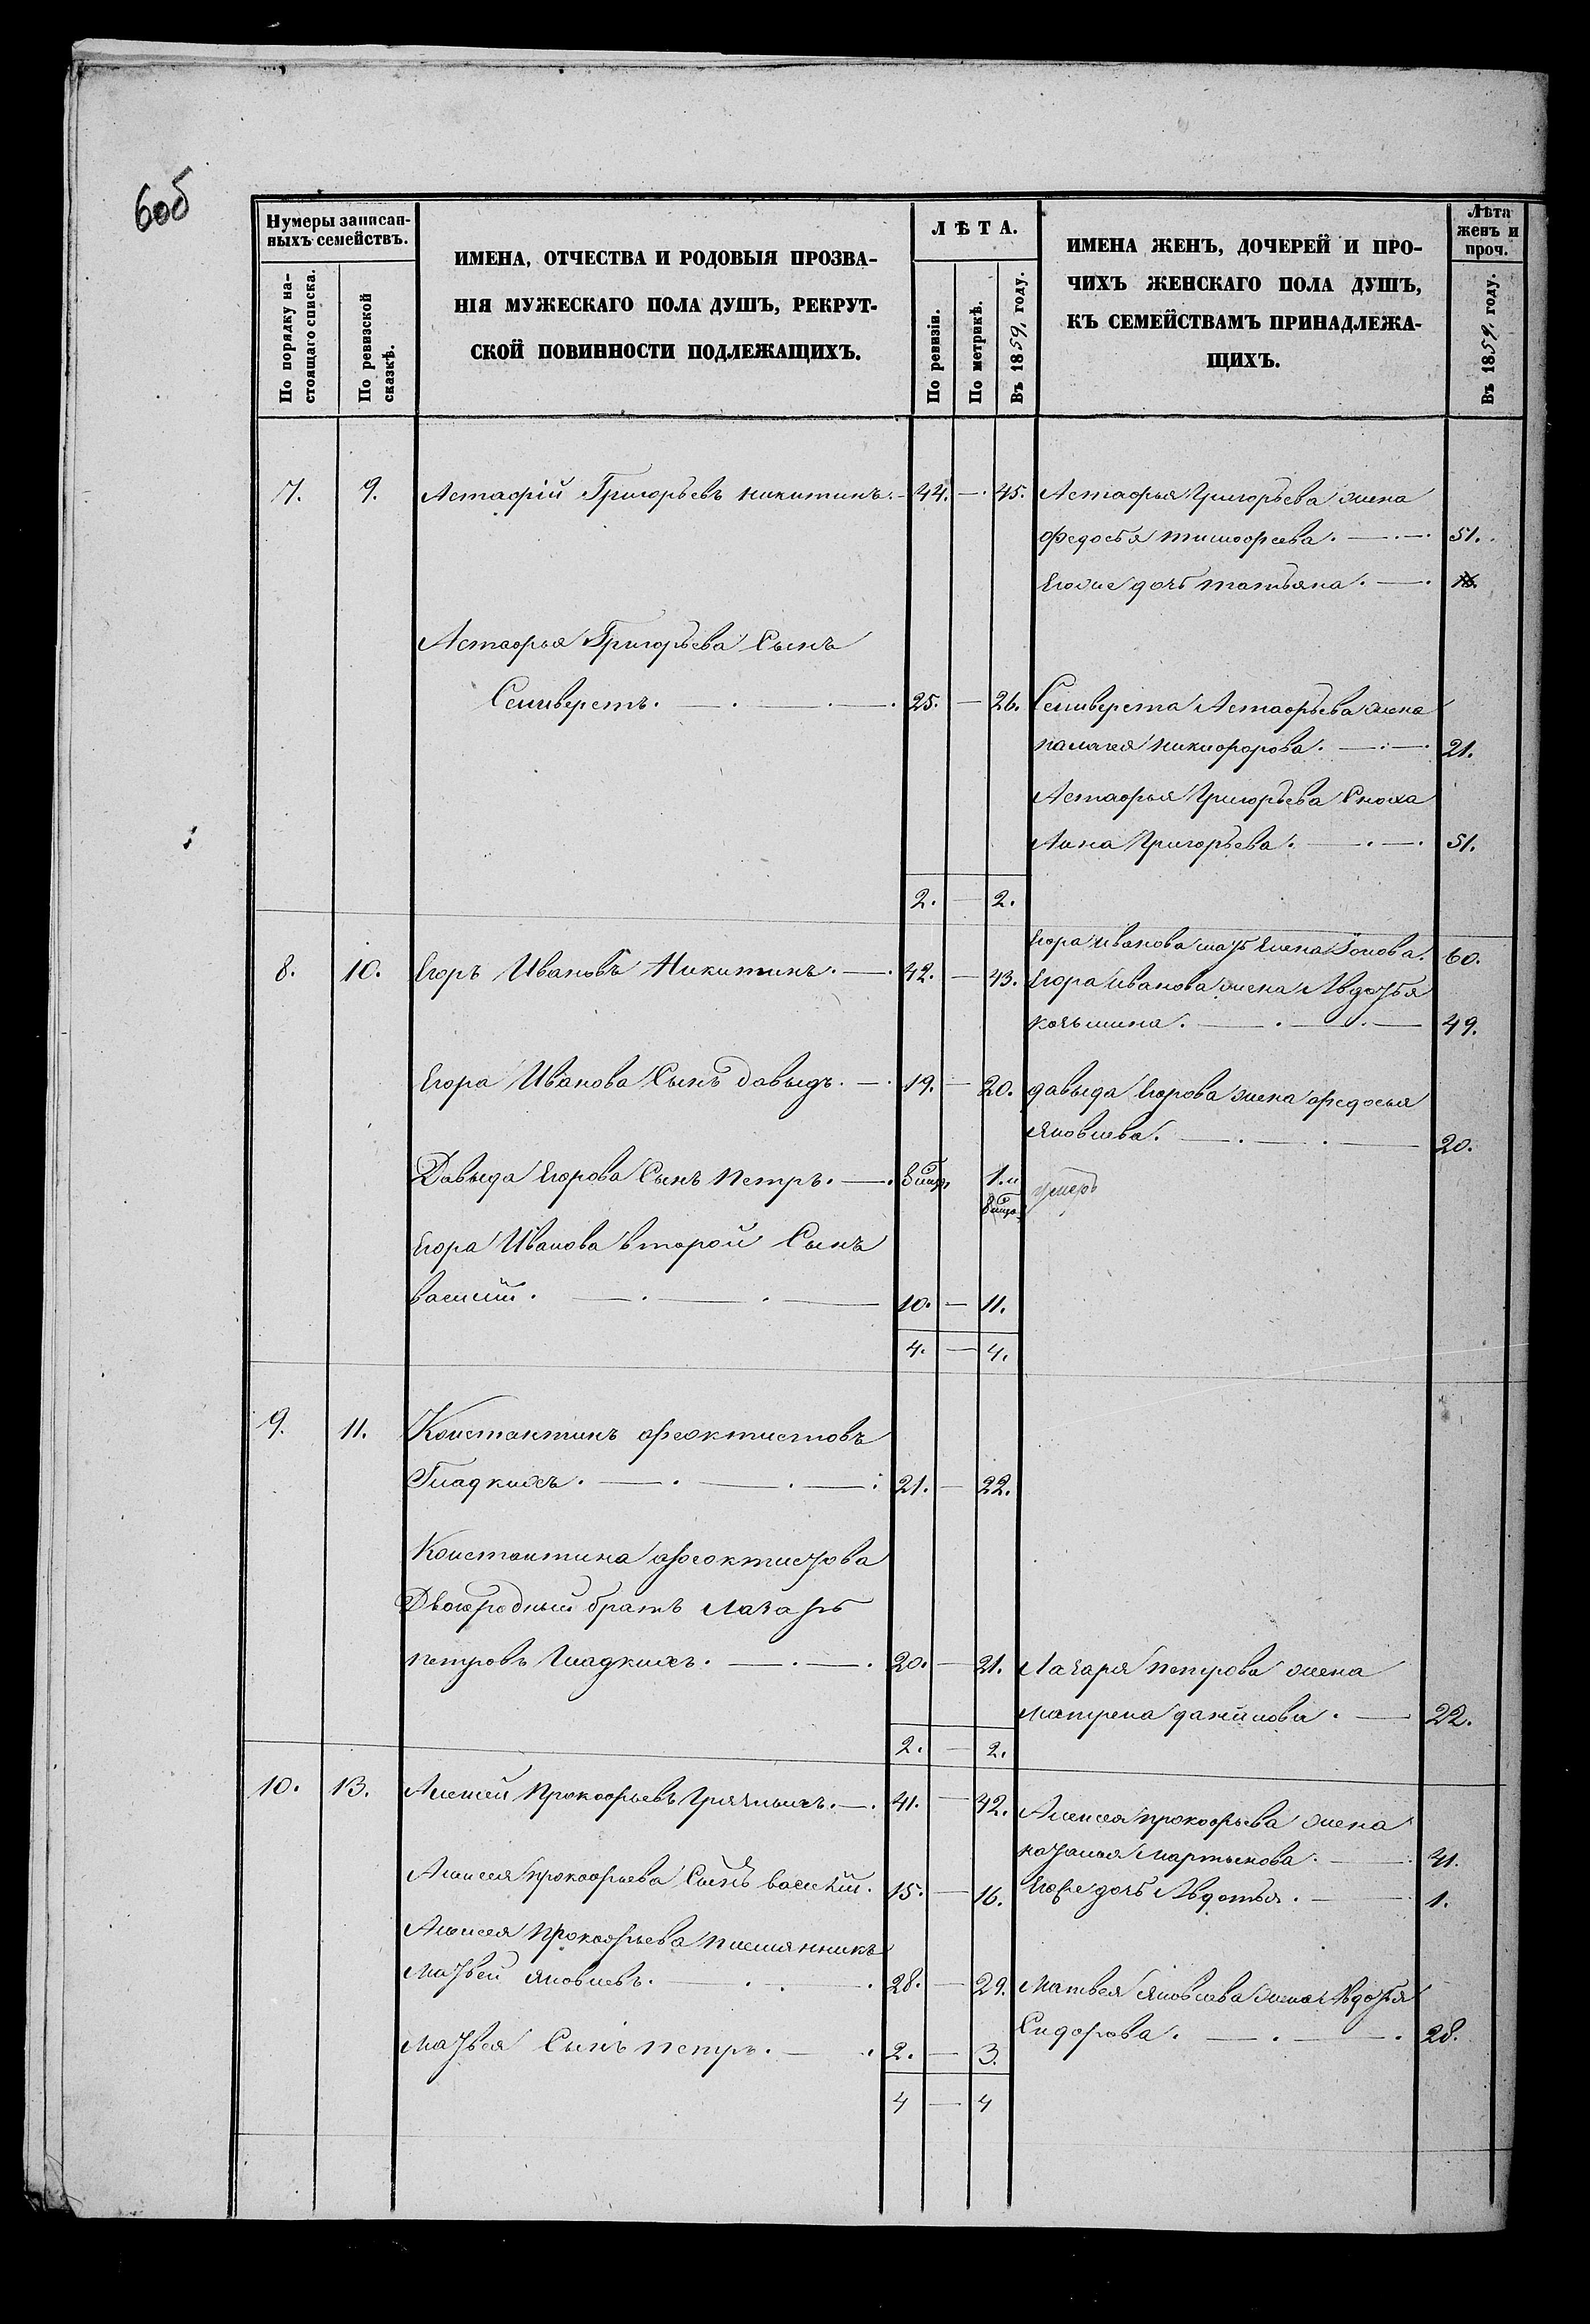 6об
Нумеры записан-
ныхъ семействъ.
По порядку на-
стоящаго списка.
По ревизской
сказкѣ.
ИМЕНА, ОТЧЕСТВА И РОДОВЫЯ ПРОЗВА-
НІЯ МУЖЕСКАГО ПОЛА ДУШЪ, РЕКРУТ-
СКОЙ ПОВИННОСТИ ПОДЛЕЖАЩИХЪ.
ЛѢТА.
По ревизіи.
По метрикѣ.
Въ 1859, году.
ИМЕНА ЖЕНЪ, ДОЧЕРЕЙ И ПРО-
ЧИХЪ ЖЕНСКАГО ПОЛА ДУШЪ,
КЪ СЕМЕЙСТВАМЪ ПРИНАДЛЕЖА-
ЩИХЪ.
Лѣта
женъ и
проч.
Въ 1859, году.
7. 9. Астафій Григорьевъ никитинъ. 44. — 45. Астафья Григорьева жена
федосья тимофеева. — 51.
Его же дочь татьяна. —
Астафья Григорьева Сынъ
Селиверстъ. — 25. — 26. Селиверста Астафьева жена
палагея никифорова. — 21.
Астафья Григорьева Сноха
Анна Григорьева. — 51.
2. — 2.
Егора иванова мать Елена Зотова. 60.
8. 10. Егоръ Ивановъ Никитинъ. — 42. — 43. Егора иванова жена Авдотья
козьмина. — 49.
Егора Иванова Сынъ давыдъ. — 19. — 20. давыда Егорова жена федосья
Яковлева. — 20.
Давыда Егорова Сынъ петръ. — 8 мѣс. 1. и умеръ
8 мѣс.
Егора Иванова второй Сынъ
василій. — 10. — 11.
4. — 4.
9. 11. Константинъ феоктистовъ
Гладкихъ. — 21. — 22.
Константина феоктистова
Двоюродный братъ Лазарь
петровъ Гладкихъ. — 20. — 21. Лазаря петрова жена
матрена данилова. — 22.
2. — 2.
10. 13. Алексей Прокофьевъ Грязныхъ. — 41. — 42. Алексея прокофьева жена
наталья Мартынова. — 41.
Алексея прокофьева Сынъ василій. 15. — 16. Его же дочь Авдотья. — 1.
Алексея Прокофьева племянникъ
Матвей яковлевъ. — 28. — 29. Матвея яковлева жена Авдотья
Сидорова. — 28.
Матвея Сынъ петръ. — 2. — 3.
4 — 4